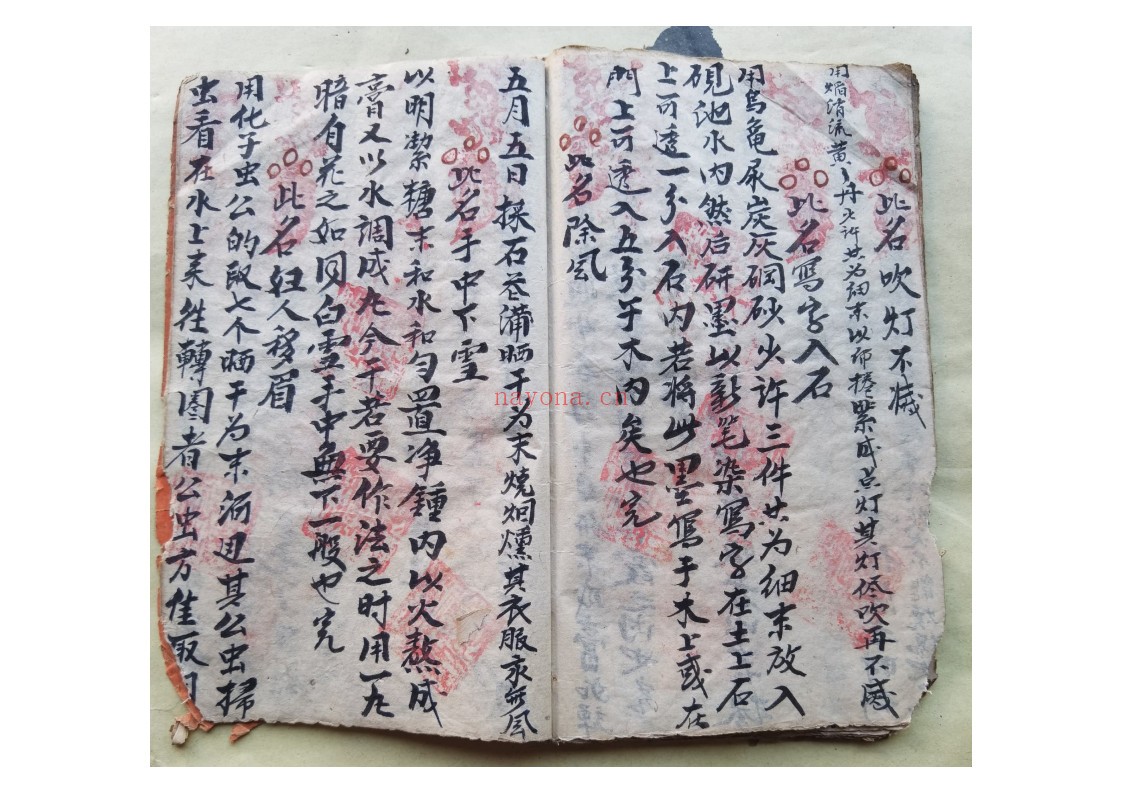 此名吹灯不滅
用焔消流黄丹少许共为细末以布捲紧成点灯其灯侭吹再不滅
此名写字入石
用烏龜尿炭灰硇砂少许三件共为细末放入
硯池水内然后研墨以新笔染寫字在土上石
上可透一分入石内若将此墨寫于木上或在
門上可透入五分于木内矣也完
此名除風
五月五日採石菖蒲晒干为末燒烟燻其衣服永無風
此名手中下雪
以明潔糖末和水和匀置净鍾内以火熬成
膏又以水調成丸令干若要作法之时用一丸
暗自花之如同白雪手中無下一般也完
此名妇人移眉
用化子虫公的取七个晒干为末 其公虫掃
虫看在水上来往轉圈者公虫方佳取用
nayona.cn